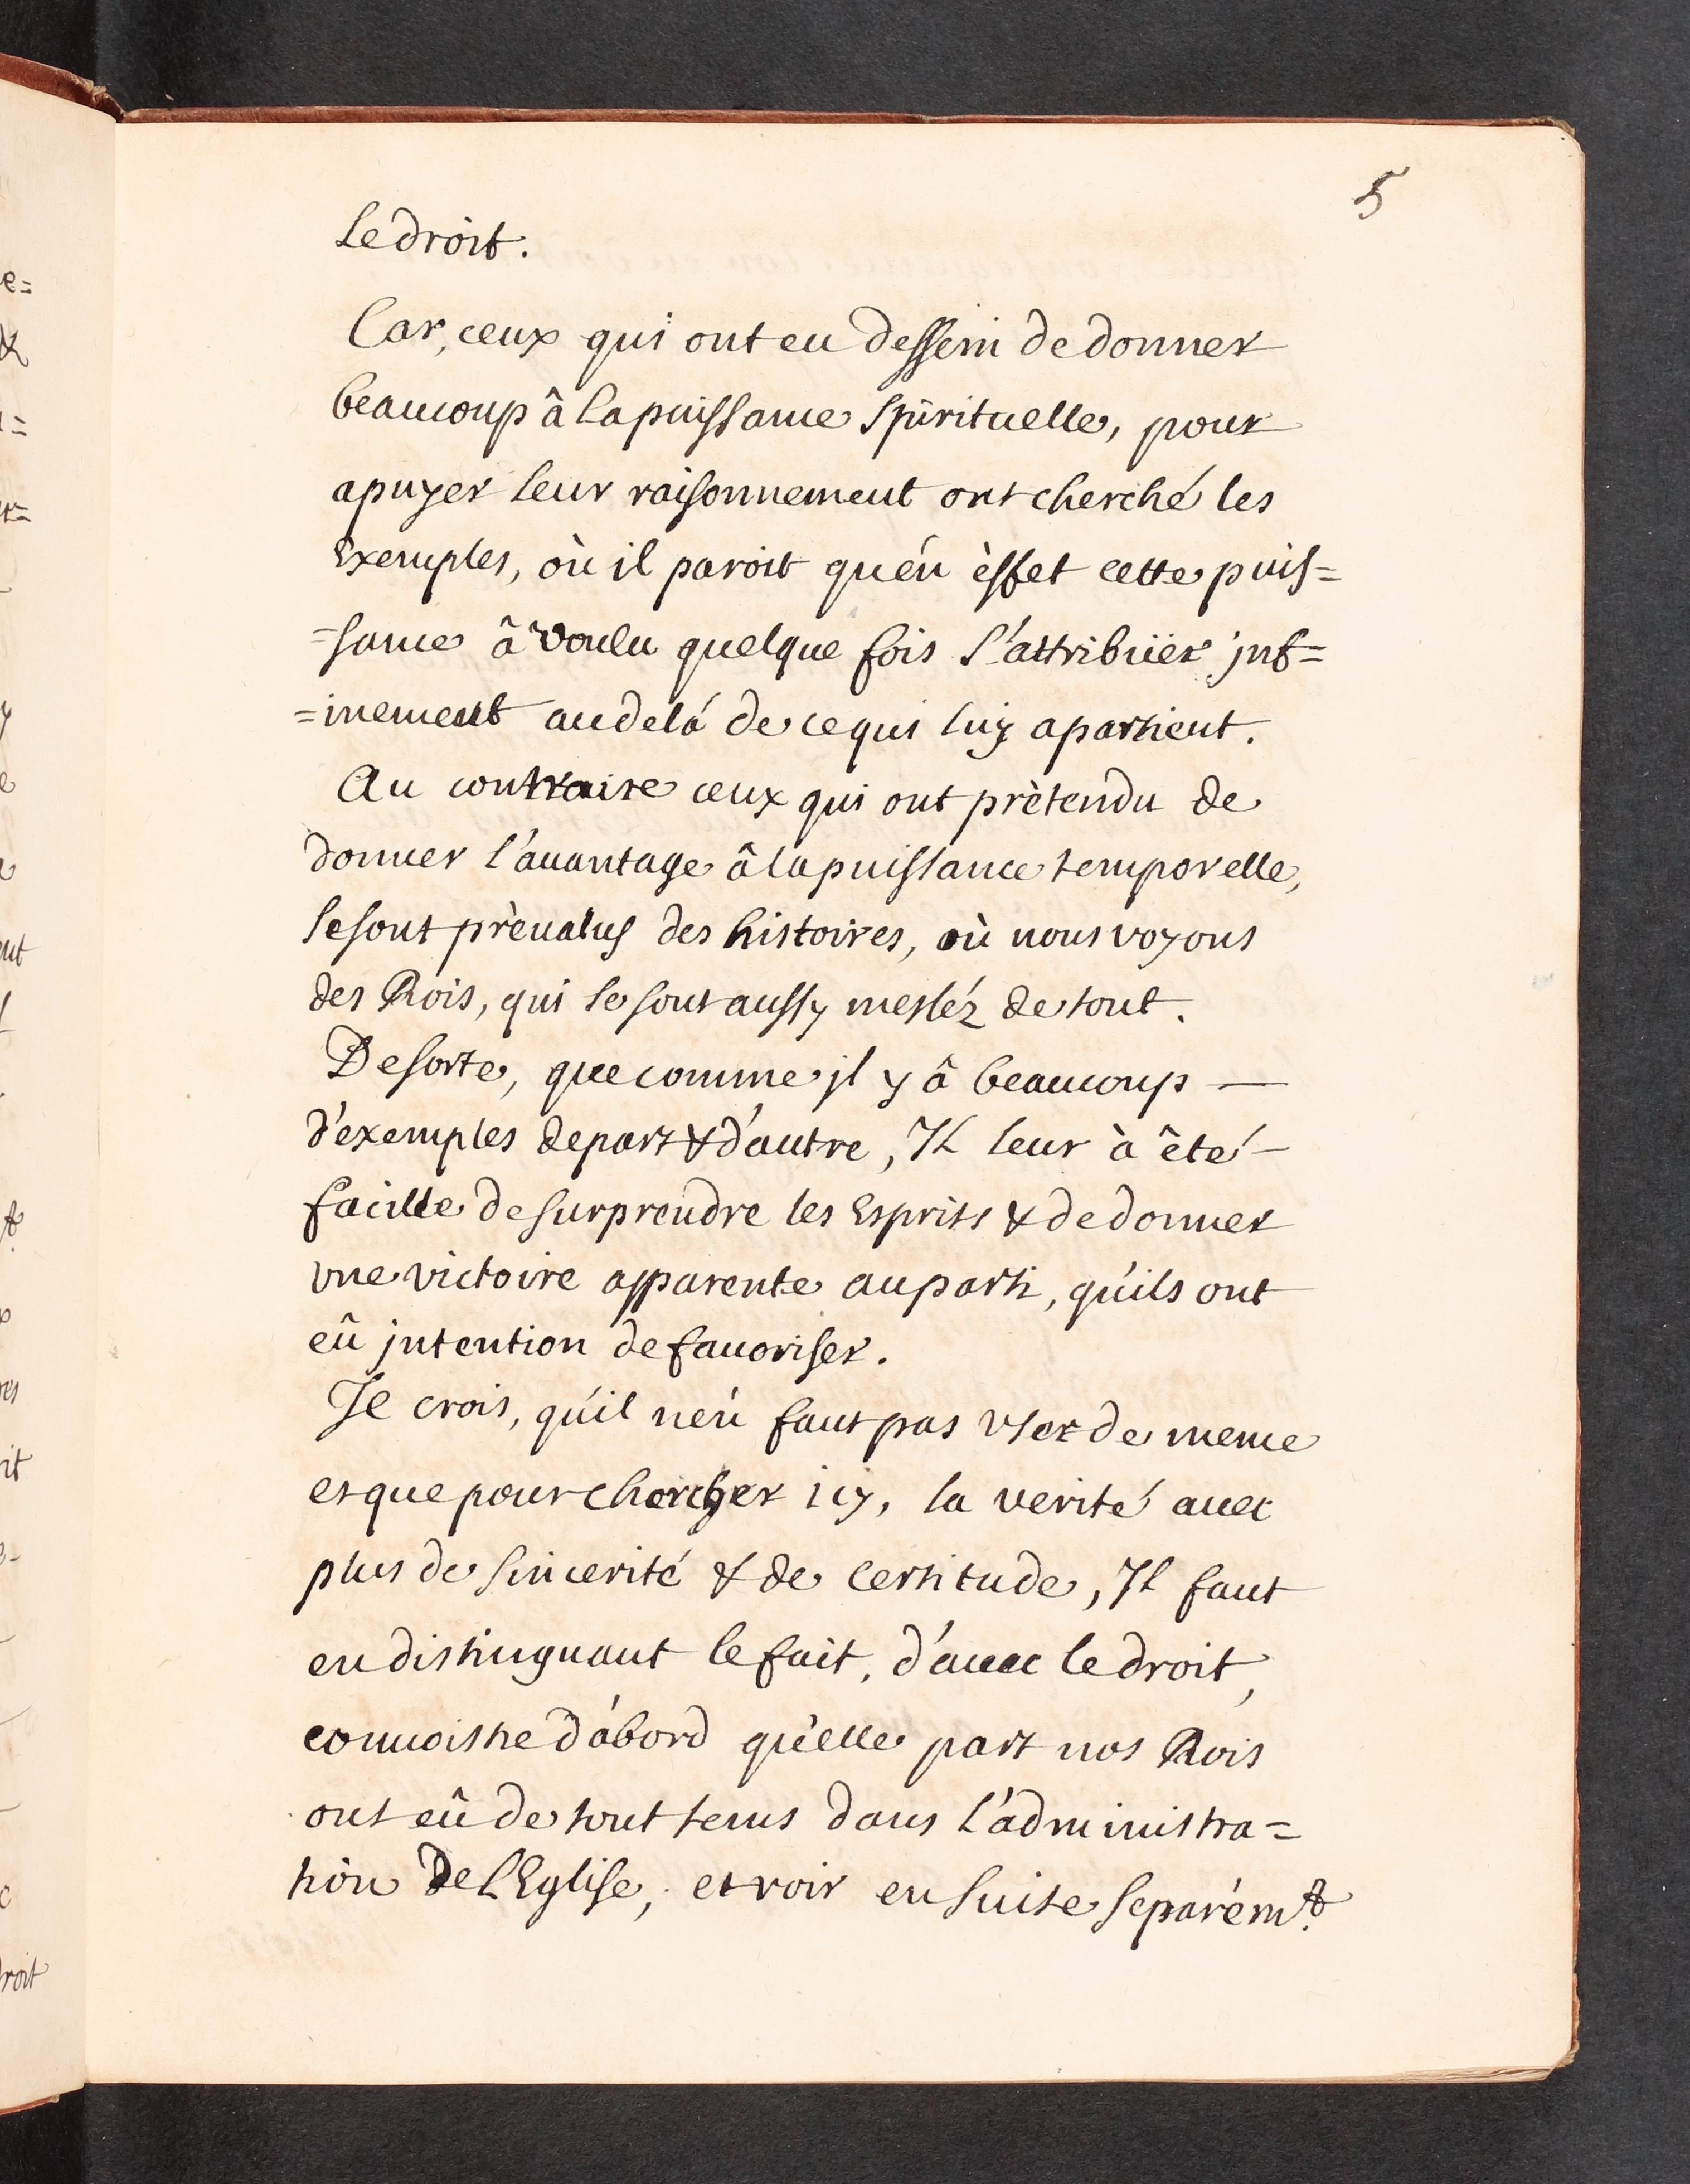 5
le droit.
Car, ceux qui ont eu dessein de donner
beaucoup â la puissance Spirituelle, pour
apuyer leur raisonnement ont cherché les
Exemples, où il paroit qu'en èffet cette puis=
=sance â voulu quelque fois s'attribüer jnf=
=inement au delá de ce qui luy apartient.
Au contraire ceux qui ont prètendu de
donner l'auantage â la puissance temporelle,
se sont prèualus des histoires, où nous voyons
des Rois, qui se sont aussy mesléz de tout.
De sorte, que comme jl y â beaucoup —
d'exemples de part & d'autre, Il leur à êté —
facille de surprendre les Esprits & de donner
vne victoire apparente au parti, qu'ils ont
eû jntention de fauoriser.
Je crois, qu'il n'en faut pas vser de meme
et que pour chercher icy, la verité auec
plus de sincerité & de certitude, Il faut
en distinguant le fait, d'auec le droit,
connoistre d'abord qu'elle part nos Rois
ont eû de tout tems dans l'administra=
tion De l'Eglise, et voir en suite separém.t
e=
&
=
r=
y
e
nt
t
res
it
e-
c
droit